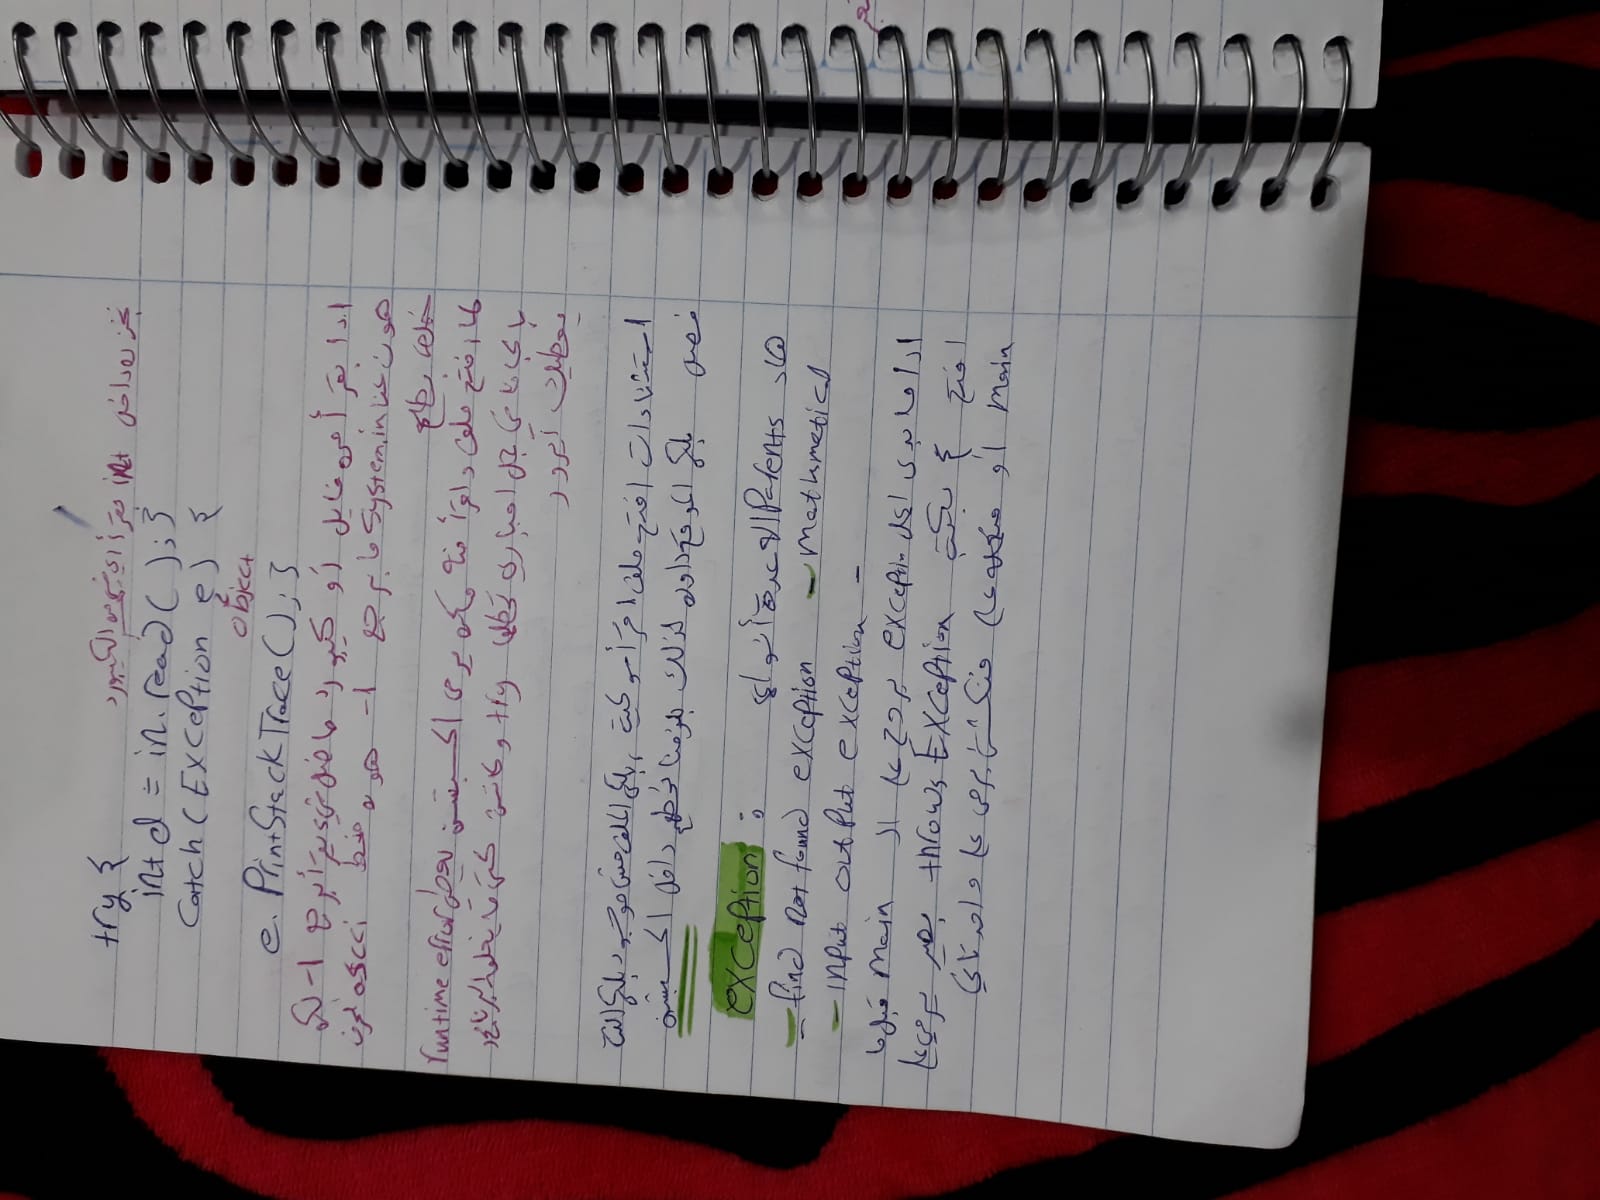 try {
نخزنه داخل int نقرأ أي شي من الكيبورد
int d = in.read( ); }
Catch (Exception e) {
object
e. PrintStackTrace( ); }
اذا بقرأ من فايل أو كيبورد ما ضل شي يقرأ برجع 1- لكن
هون عنا System.in ما برجع 1- هون ascci نحن
خلص بطلع
لما افتح ملف واقرأ منه ممكن يرمي اكسبشن يعطي runtime error
بالجافا في جمل اجباري تحطلها try و كاتش حتى ما يخلي البرنامج
يعطيك ايرور
استثناءات افتح ملف اقرأ سوكيت ، بلكي الملف مش موجود بلكي النت
فصل بلكي الموقع داون لذلك بلزمنا نحطهم داخل اكسبشن
exception : هاد الـ Parents عدة أنواع
- find not found exception - mathmetical
- input output exception -
اذا ما بدي اعمل exceptin بروح على الـ main قبل ما
افتح { بكتب throws Exception بصير يرمي على
main أو فنكشن يرمي على واحد تاني